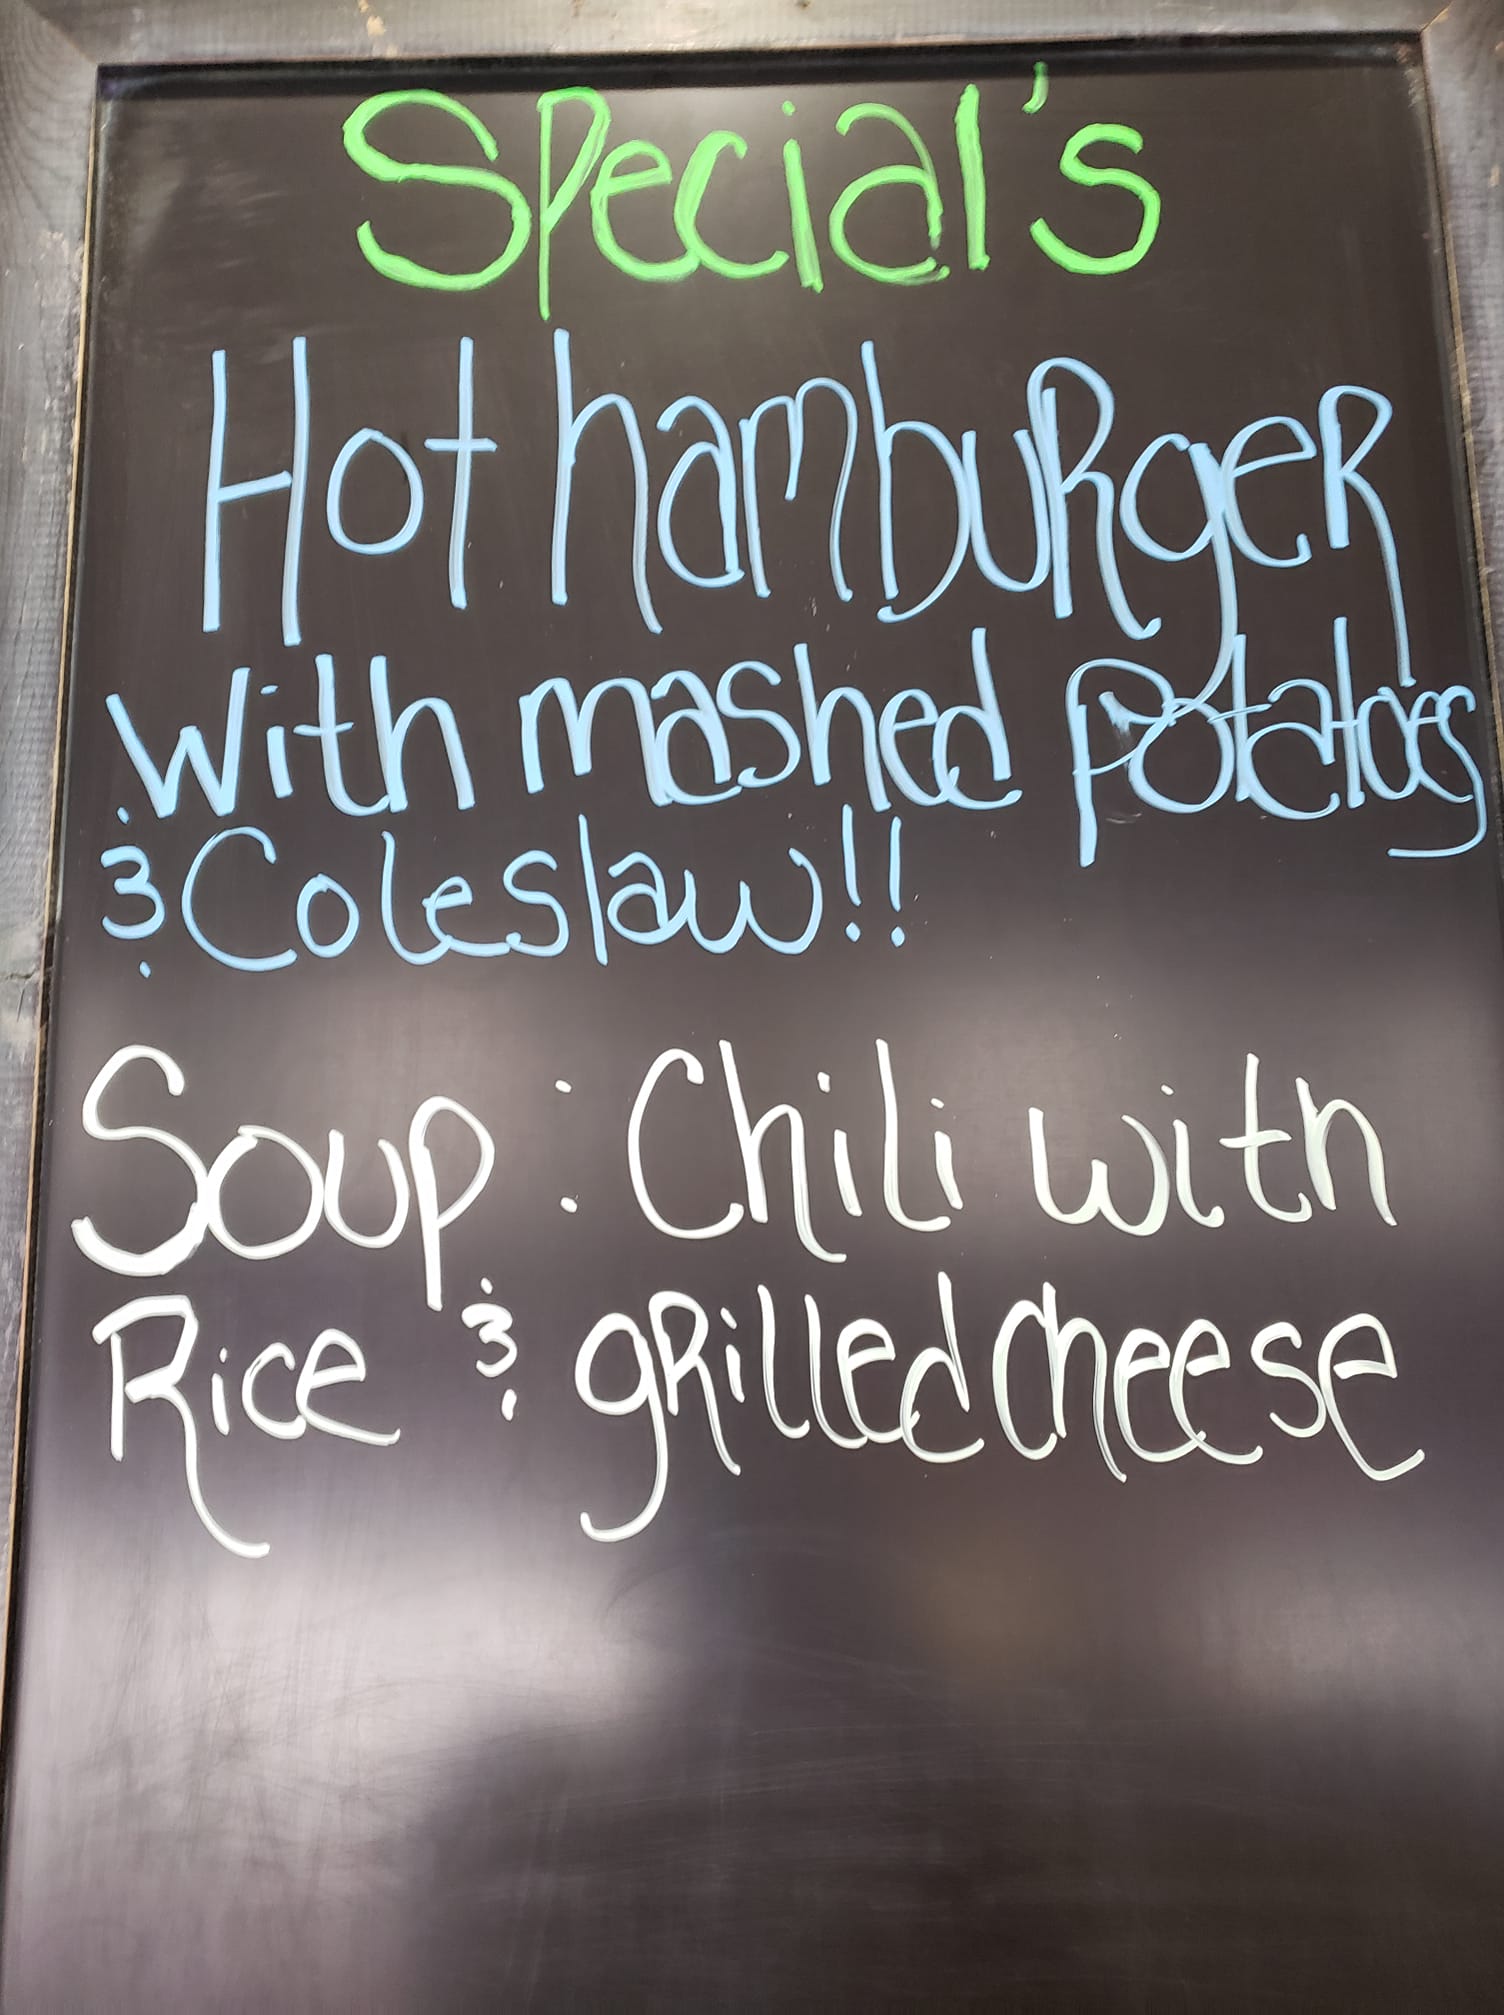 Special's
Hot hamburger
With mashed potatoes
& Coleslaw!!
Soup : Chili with
Rice & grilled cheese